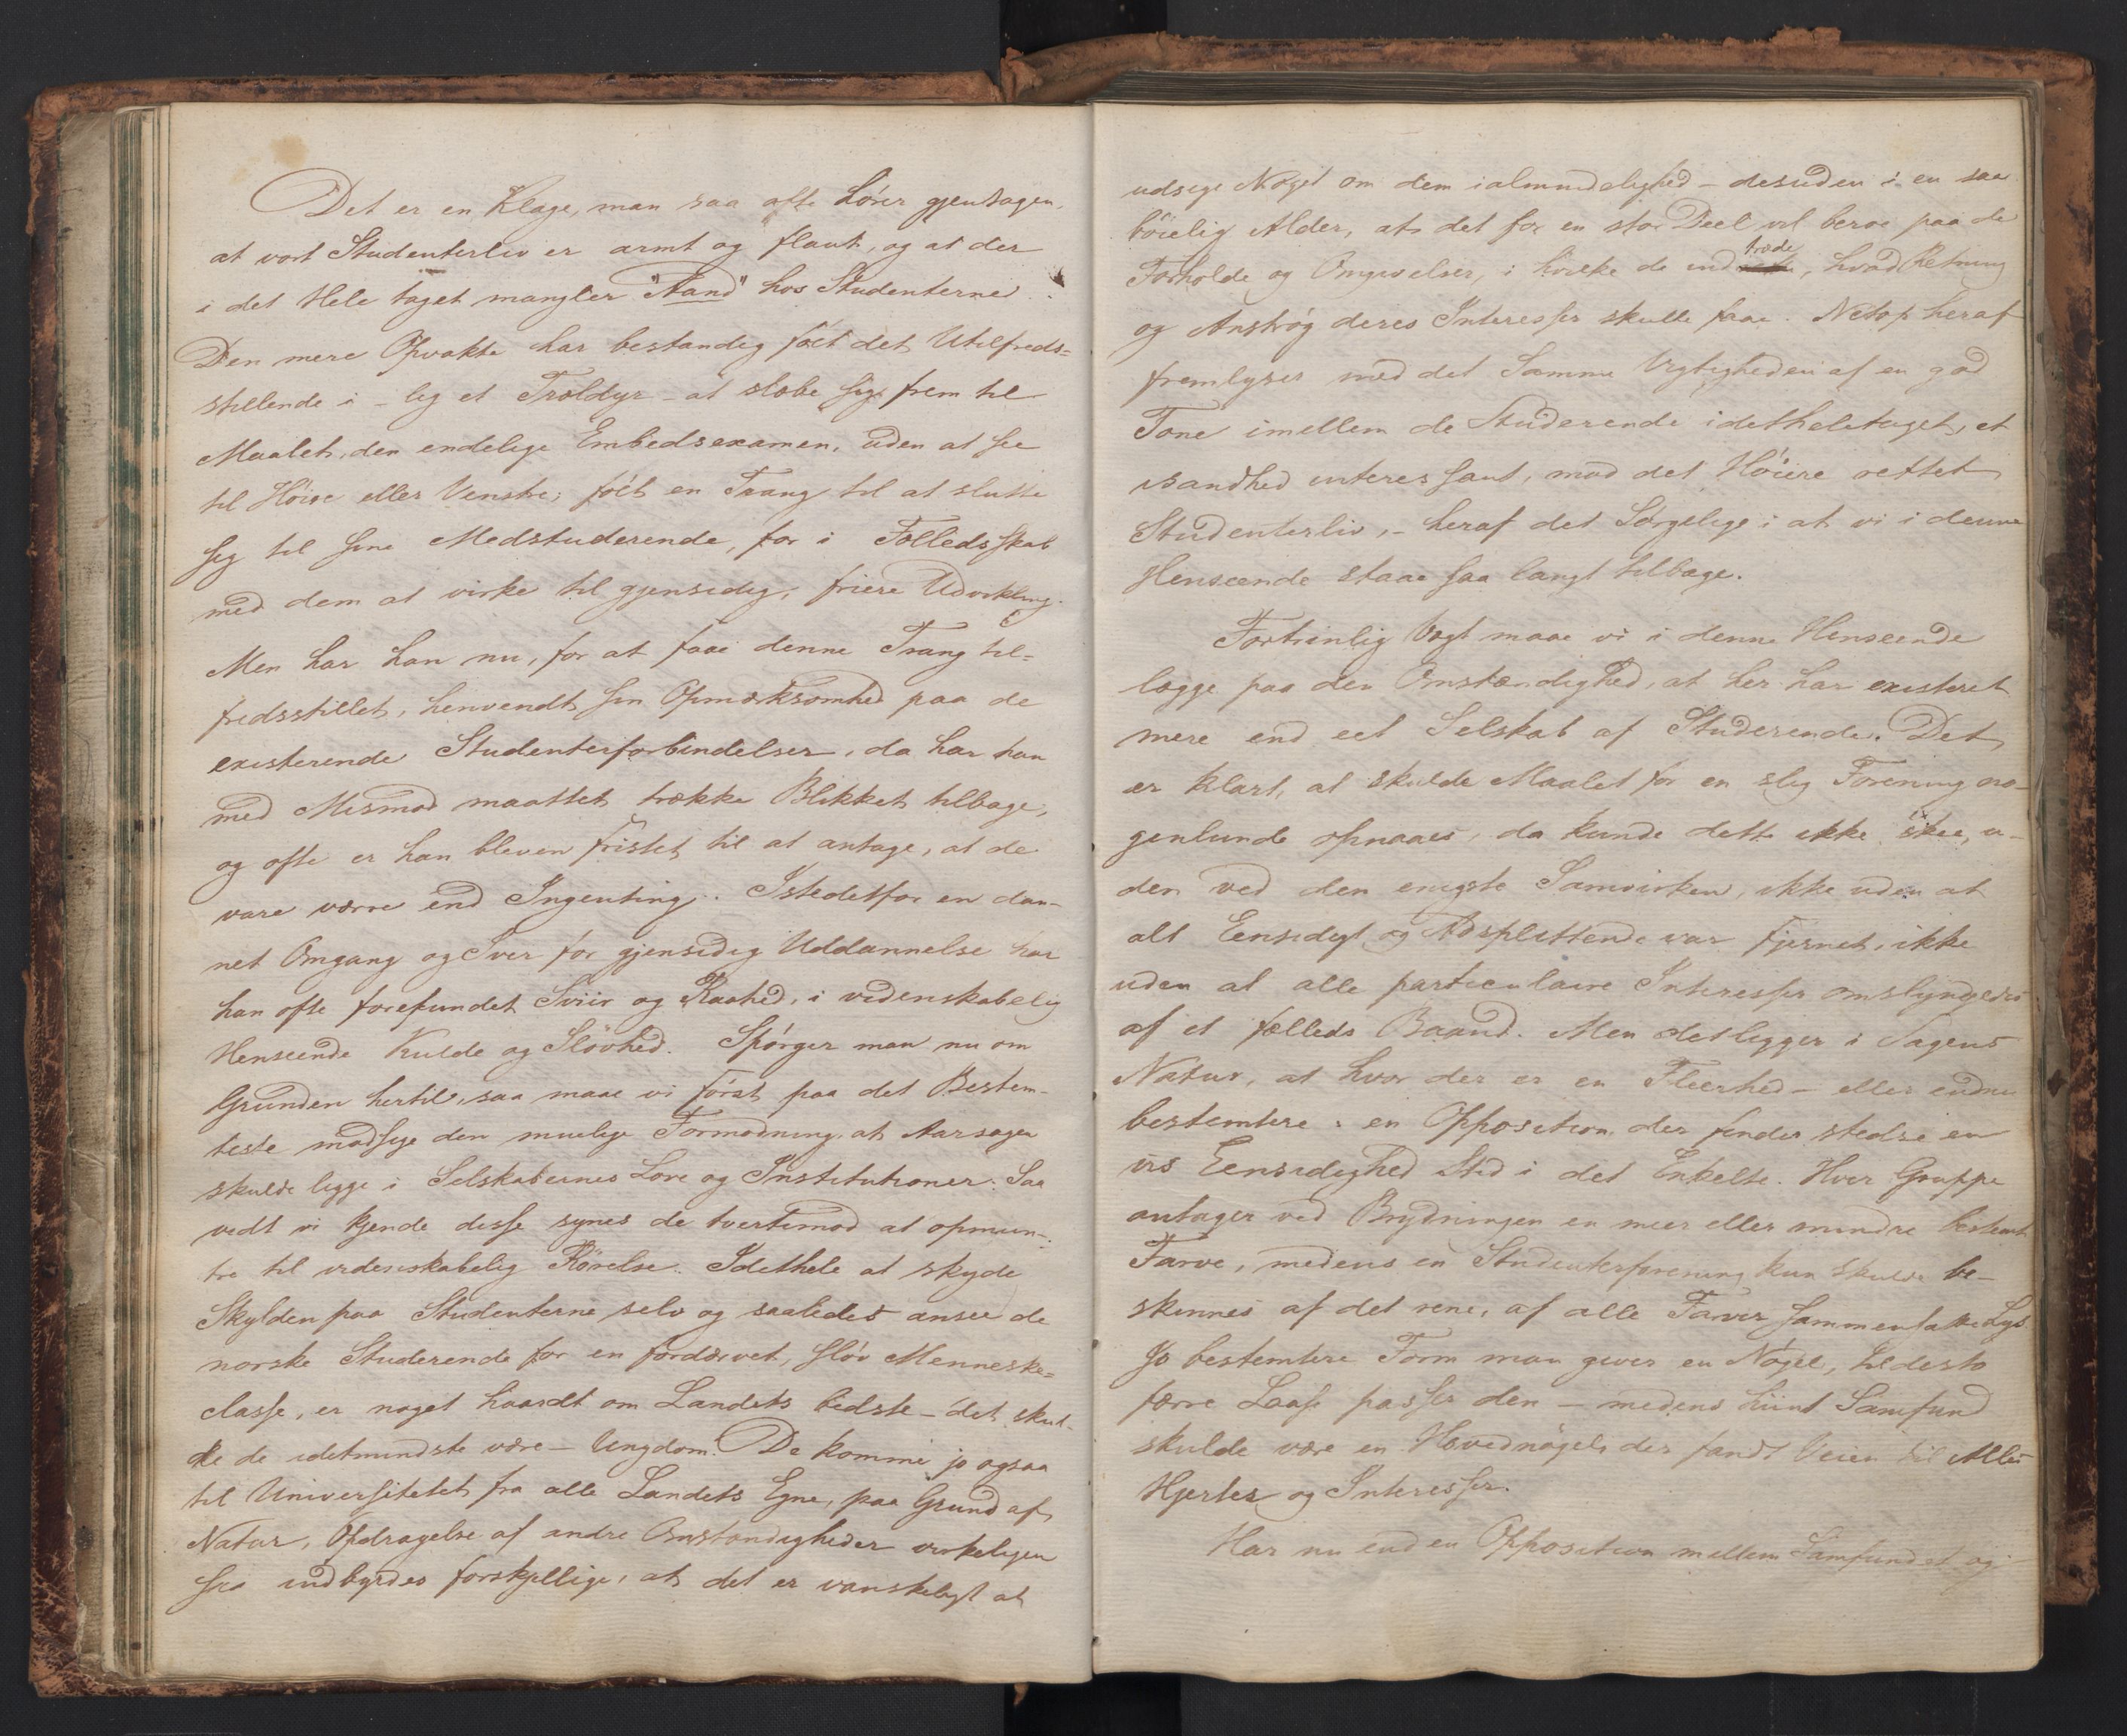 Det er en Klage, man saa ofte hörer gjentagen,
at vort Studenterliv er armt og flaut, og at der
i det Hele taget mangler "Aand" hos Studenterne.
Den mere Opvakte har bestandig fölt det Utilfreds=
stillende i - lig et Trældyr - at slæbe sig frem til
Maalet, den endelige Embedsexamen, uden at see
til Höire eller Venstre; fölt en Trang til at slutte
sig til sine Medstuderende, for i Fælledsskab
med dem at virke til gjensidig, friere Udvikling.
Men har han nu, for at faae denne Trang til=
fredsstillet, henvendt sin Opmærksomhed paa de
existerende Studenterforbindelser, da har han
med Mismod maattet trække Blikket tilbage,
og ofte er han bleven fristet til at antage, at de
vare værre end Ingenting. Istedetfor en dan-
net Omgang og Iver for gjensidig Uddannelse har
han ofte forefundet Sviir og Raahed, i videnskabelig
Henseende Kulde og Slövhed. Spörger man nu om
Grunden hertil, saa maae vi först paa det Bestem-
teste modsige den muelige Formodning, at Aarsagen
skulde ligge i Selskabernes Love og Institutioner. Saa
vidt vi kjende disse synes de tvertimod at opmun-
tre til videnskabelig Rörelse. Idethele at skyde
Skylden paa Studenterne selv og saaledes ansee de
norske Studerende for en fordærvet, slöv Menneske=
classe, er noget haardt om Landets bedste - det skul-
de de idetmindste være - Ungdom. De komme jo ogsaa
til Universitetet fra alle Landets Egne, paa Grund af
Natur, Opdragelse af andre Omstændigheder virkeligen
saa indbyrdes forskjellige, at det er vanskeligt at
udsige Noget om dem ialmindelighed - desuden i en saa
böielig Alder, at det for en stor Deel vil beroe paa de
Forholde og Omgivelser, i hvilke de indtræde, hvad Retning
og Anströg deres Interesser skulle faae. Netop heraf
fremlyser med det Samme Vigtigheden af en god
Tone imellem de Studerende idetheletaget, et
isandhed interessant, mod det Höiere rettet
Studenterliv, - heraf det Sörgelige i at vi i denne
Henseende staae saa langt tilbage.
Fortrinlig Vægt maae vi i denne Henseende
lægge paa den Omstændighed, at her har existeret
mere end eet Selskab af Studerende. Det
er klart, at skulde Maalet for en slig Forening no-
genlunde opnaaes, da kunde dette ikke skee, u-
den ved den enigste Samvirken, ikke uden at
alt Eensidigt og Adsplittende var fjernet, ikke
uden at alle particulaire Interesser omslyngedes
af et fælleds Baand. Men det ligger i Sagens
Natur, at hvor der er en Fleerhed - eller endnu
bestemtere: en Opposition, der finder stedse en
vis Eensidighed Sted i det Enkelte. Hver Gruppe
antager ved Brydningen en meer eller mindre bestemt
Farve, medens en Studenterforening kun skulde be-
skinnes af det rene, af alle Farver sammensatte Lys.
Jo bestemtere Form man giver en Nögel, til desto
færre Laase passer den - medens hiint Samfund
skulde være en Hovednögel, der fandt Veien til Alles
Hjerter og Interesser.
Har nu end en Opposition mellem Samfundet og